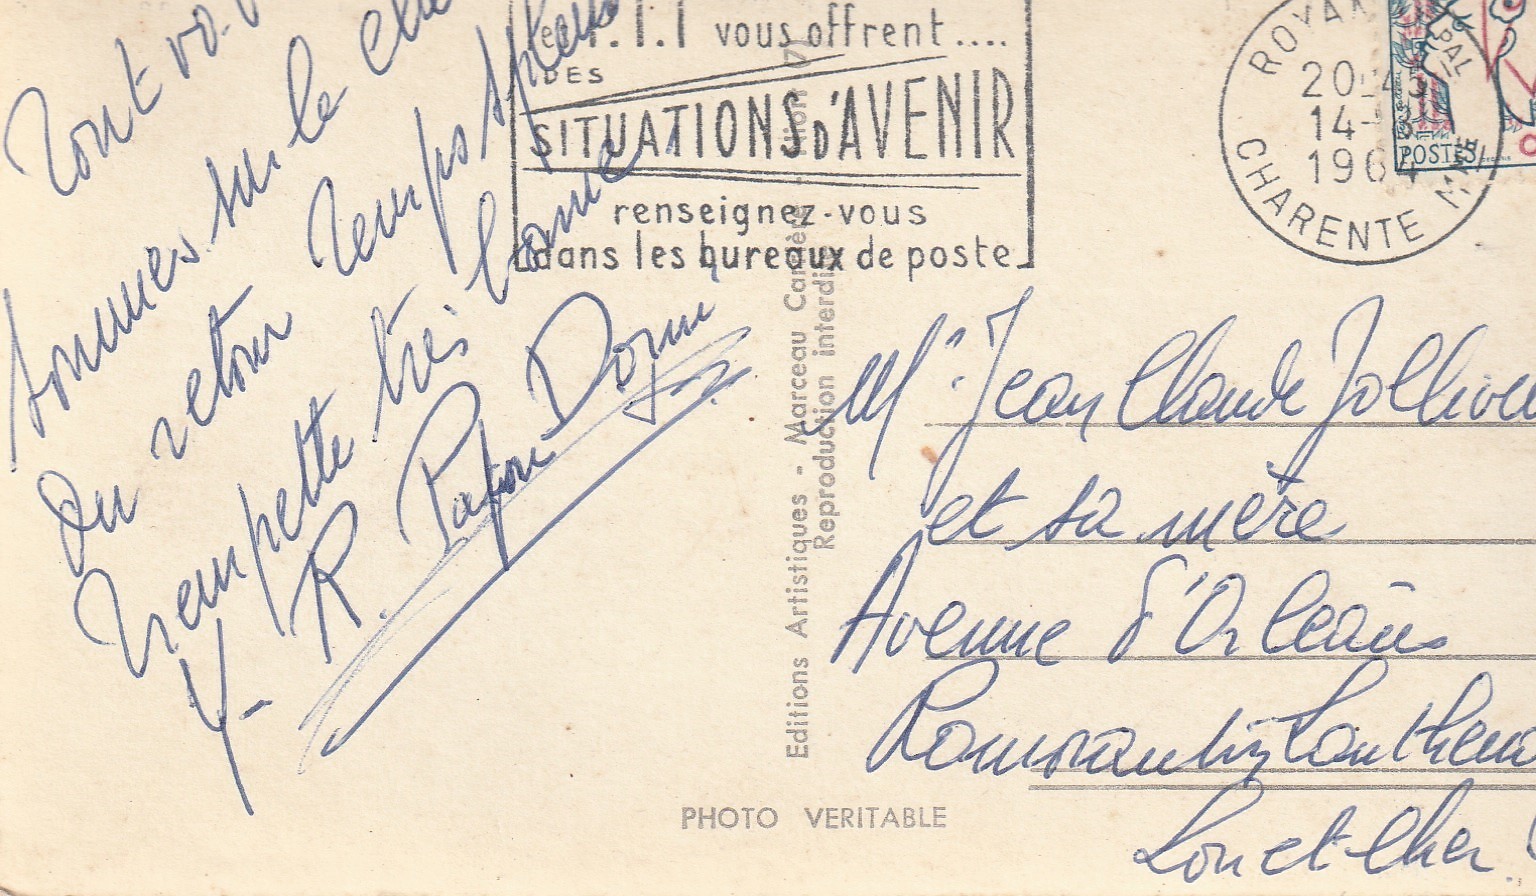 Tout va
sommes sur le
du retour Temps
trempette très bonne
Y. R. Dorm
les P.T.T vous offrent....
DES
SITUATIONS D'AVENIR
renseignez-vous
dans les bureaux de poste
ROYAN PAL
20-45
14-8
1964
CHARENTE Mme
POSTES
Editions Artistiques - Marceau Carrière
Reproduction interdite
Mr. Jean Claude Jollivet
et sa mère
Avenue d'Orléans
Romorantin Lanthenay
Loir et Cher
PHOTO VERITABLE